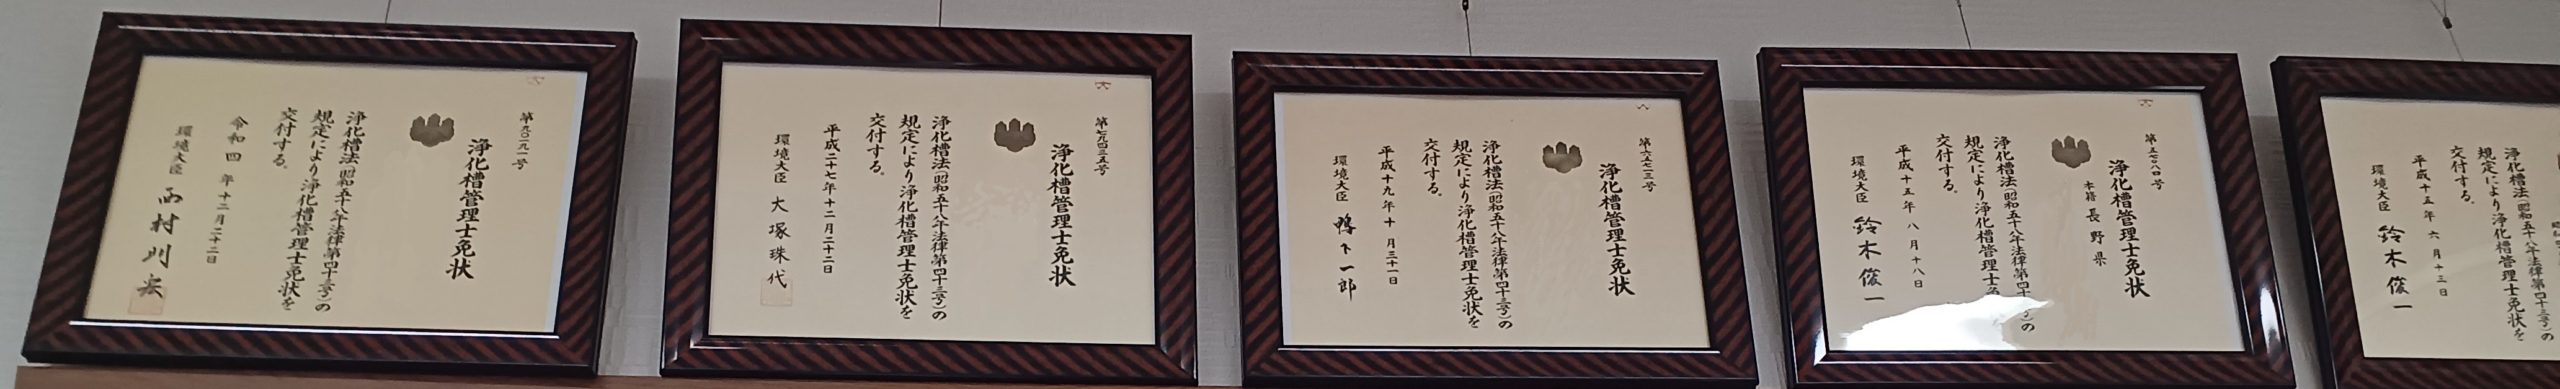 浄化槽管理士免状
浄化槽法(昭和五十八年法律第四十三号)の
規定により浄化槽管理士免状を
交付する。
令和四年十二月二十二日
環境大臣 西村明宏
第七九四三五号
浄化槽管理士免状
浄化槽法(昭和五十八年法律第四十三号)の
規定により浄化槽管理士免状を
交付する。
平成二十七年十二月二十二日
環境大臣 大塚珠代
第六五七二三号
浄化槽管理士免状
浄化槽法(昭和五十八年法律第四十三号)の
規定により浄化槽管理士免状を
交付する。
平成十九年十月三十一日
環境大臣 鴨下一郎
浄化槽管理士免状
本籍 長野県
浄化槽法(昭和五十八年法律第四十三号)の
規定により浄化槽管理士免
交付する。
平成十五年八月十八日
環境大臣 鈴木俊一
浄化槽法(昭和五十八年法律第四十三号)の
規定により浄化槽管理士免状を
交付する。
平成十五年六月十三日
環境大臣 鈴木俊一